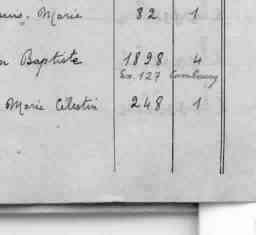 Marie 82 1
Baptiste 1898 4
Ex. 127 Combourg
Marie Célestin 248 1